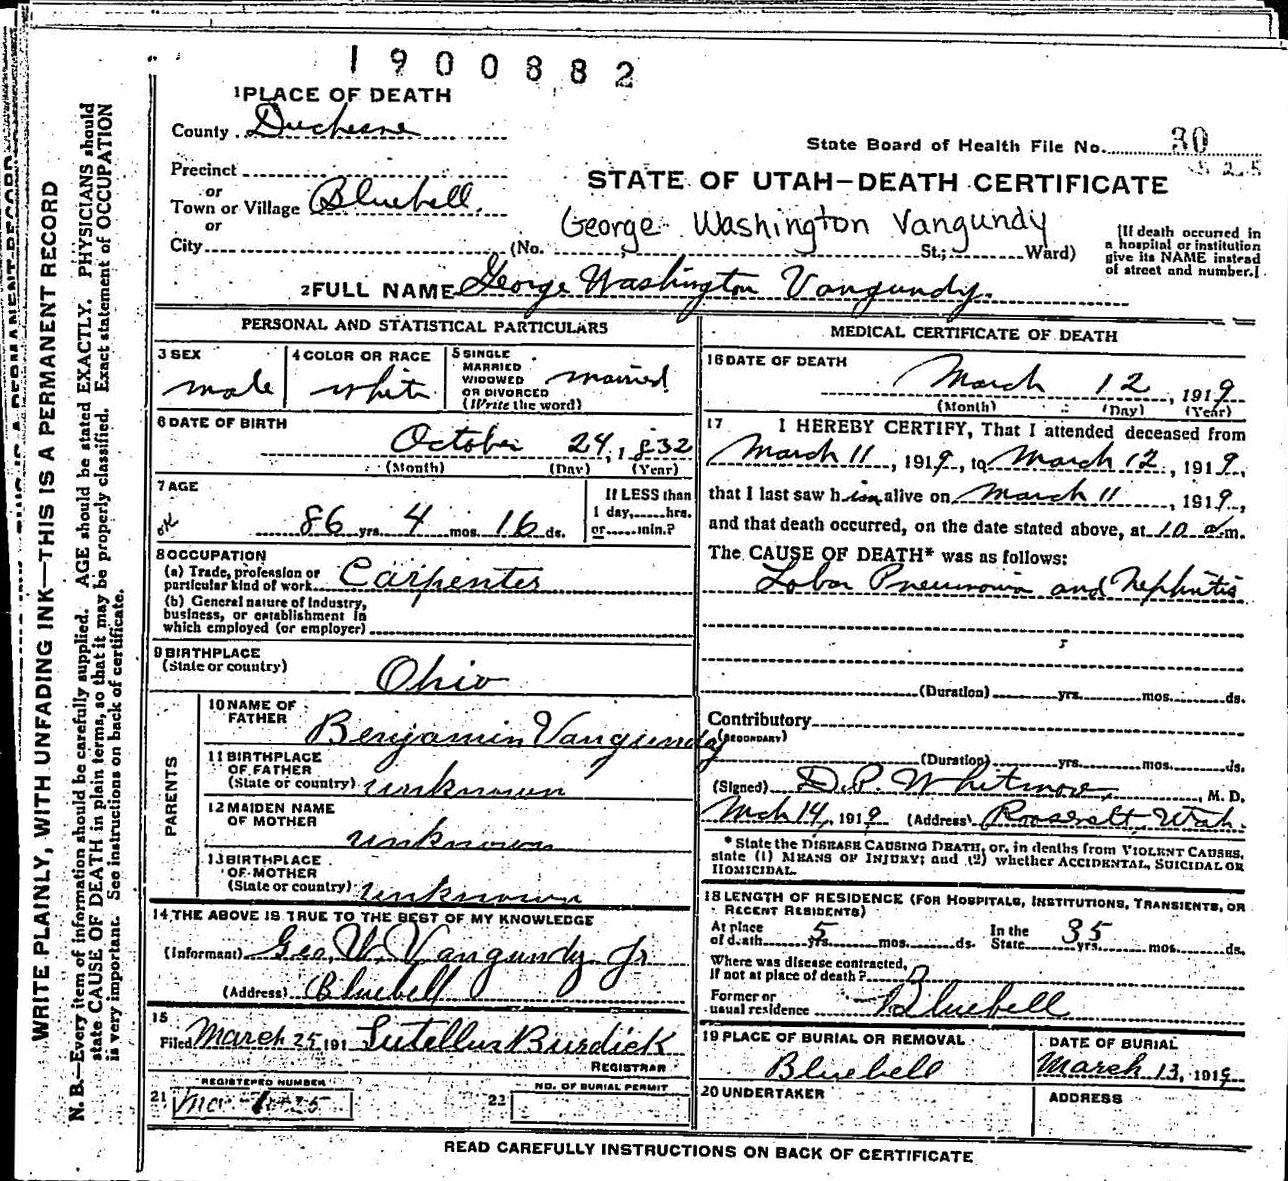 1900882
1 PLACE OF DEATH
County Duchesne
State Board of Health File No. 30
525
Precinct
or
Town or Village Bluebell.
or
City (No. St.; Ward)
STATE OF UTAH—DEATH CERTIFICATE
George Washington Vangundy
[If death occurred in
a hospital or institution
give its NAME instead
of street and number.]
2 FULL NAME George Washington Vangundy.
PERSONAL AND STATISTICAL PARTICULARS
3 SEX
male
4 COLOR OR RACE
white
5 SINGLE
MARRIED
WIDOWED
OR DIVORCED
(Write the word)
married
6 DATE OF BIRTH
October 24, 1832
(Month) (Day) (Year)
7 AGE
OK
86 yrs. 4 mos. 16 ds.
If LESS than
1 day, hrs.
or min.?
8 OCCUPATION
(a) Trade, profession or
particular kind of work Carpenter
(b) General nature of industry,
business, or establishment in
which employed (or employer)
9 BIRTHPLACE
(State or country)
Ohio
PARENTS
10 NAME OF
FATHER
Benjamin Vangunday
11 BIRTHPLACE
OF FATHER
(State or country) unknown
12 MAIDEN NAME
OF MOTHER
unknown
13 BIRTHPLACE
OF MOTHER
(State or country) unknown
14 THE ABOVE IS TRUE TO THE BEST OF MY KNOWLEDGE
(Informant) Geo. W. Vangundy Jr
(Address) Bluebell
15
Filed March 25 191 Burdick
REGISTRAR
REGISTERED NUMBER
21
NO. OF BURIAL PERMIT
22
MEDICAL CERTIFICATE OF DEATH
16 DATE OF DEATH
March 12, 1919
(Month) (Day) (Year)
17 I HEREBY CERTIFY, That I attended deceased from
March 11, 1919, to March 12, 1919,
that I last saw him alive on March 11, 1919,
and that death occurred, on the date stated above, at 10 a m.
The CAUSE OF DEATH* was as follows:
Lobar Pneumonia and Nephritis
(Duration) yrs. mos. ds.
Contributory
(SECONDARY)
(Duration) yrs. mos. ds.
(Signed) D.P. Whitmore, M. D.
Mch 14, 1919 (Address) Roosevelt, Utah.
* State the DISEASE CAUSING DEATH, or, in deaths from VIOLENT CAUSES,
state (1) MEANS OF INJURY; and (2) whether ACCIDENTAL, SUICIDAL OR
HOMICIDAL.
18 LENGTH OF RESIDENCE (FOR HOSPITALS, INSTITUTIONS, TRANSIENTS, OR
RECENT RESIDENTS)
At place
of death 5 yrs. mos. ds.
In the
State 35 yrs. mos. ds.
Where was disease contracted,
if not at place of death?
Former or
usual residence Bluebell
19 PLACE OF BURIAL OR REMOVAL
Bluebell
DATE OF BURIAL
March 13, 1919
20 UNDERTAKER
ADDRESS
READ CAREFULLY INSTRUCTIONS ON BACK OF CERTIFICATE
WRITE PLAINLY, WITH UNFADING INK—THIS IS A PERMANENT RECORD
N. B.—Every item of information should be carefully supplied. AGE should be stated EXACTLY. PHYSICIANS should
state CAUSE OF DEATH in plain terms, so that it may be properly classified. Exact statement of OCCUPATION
is very important. See instructions on back of certificate.